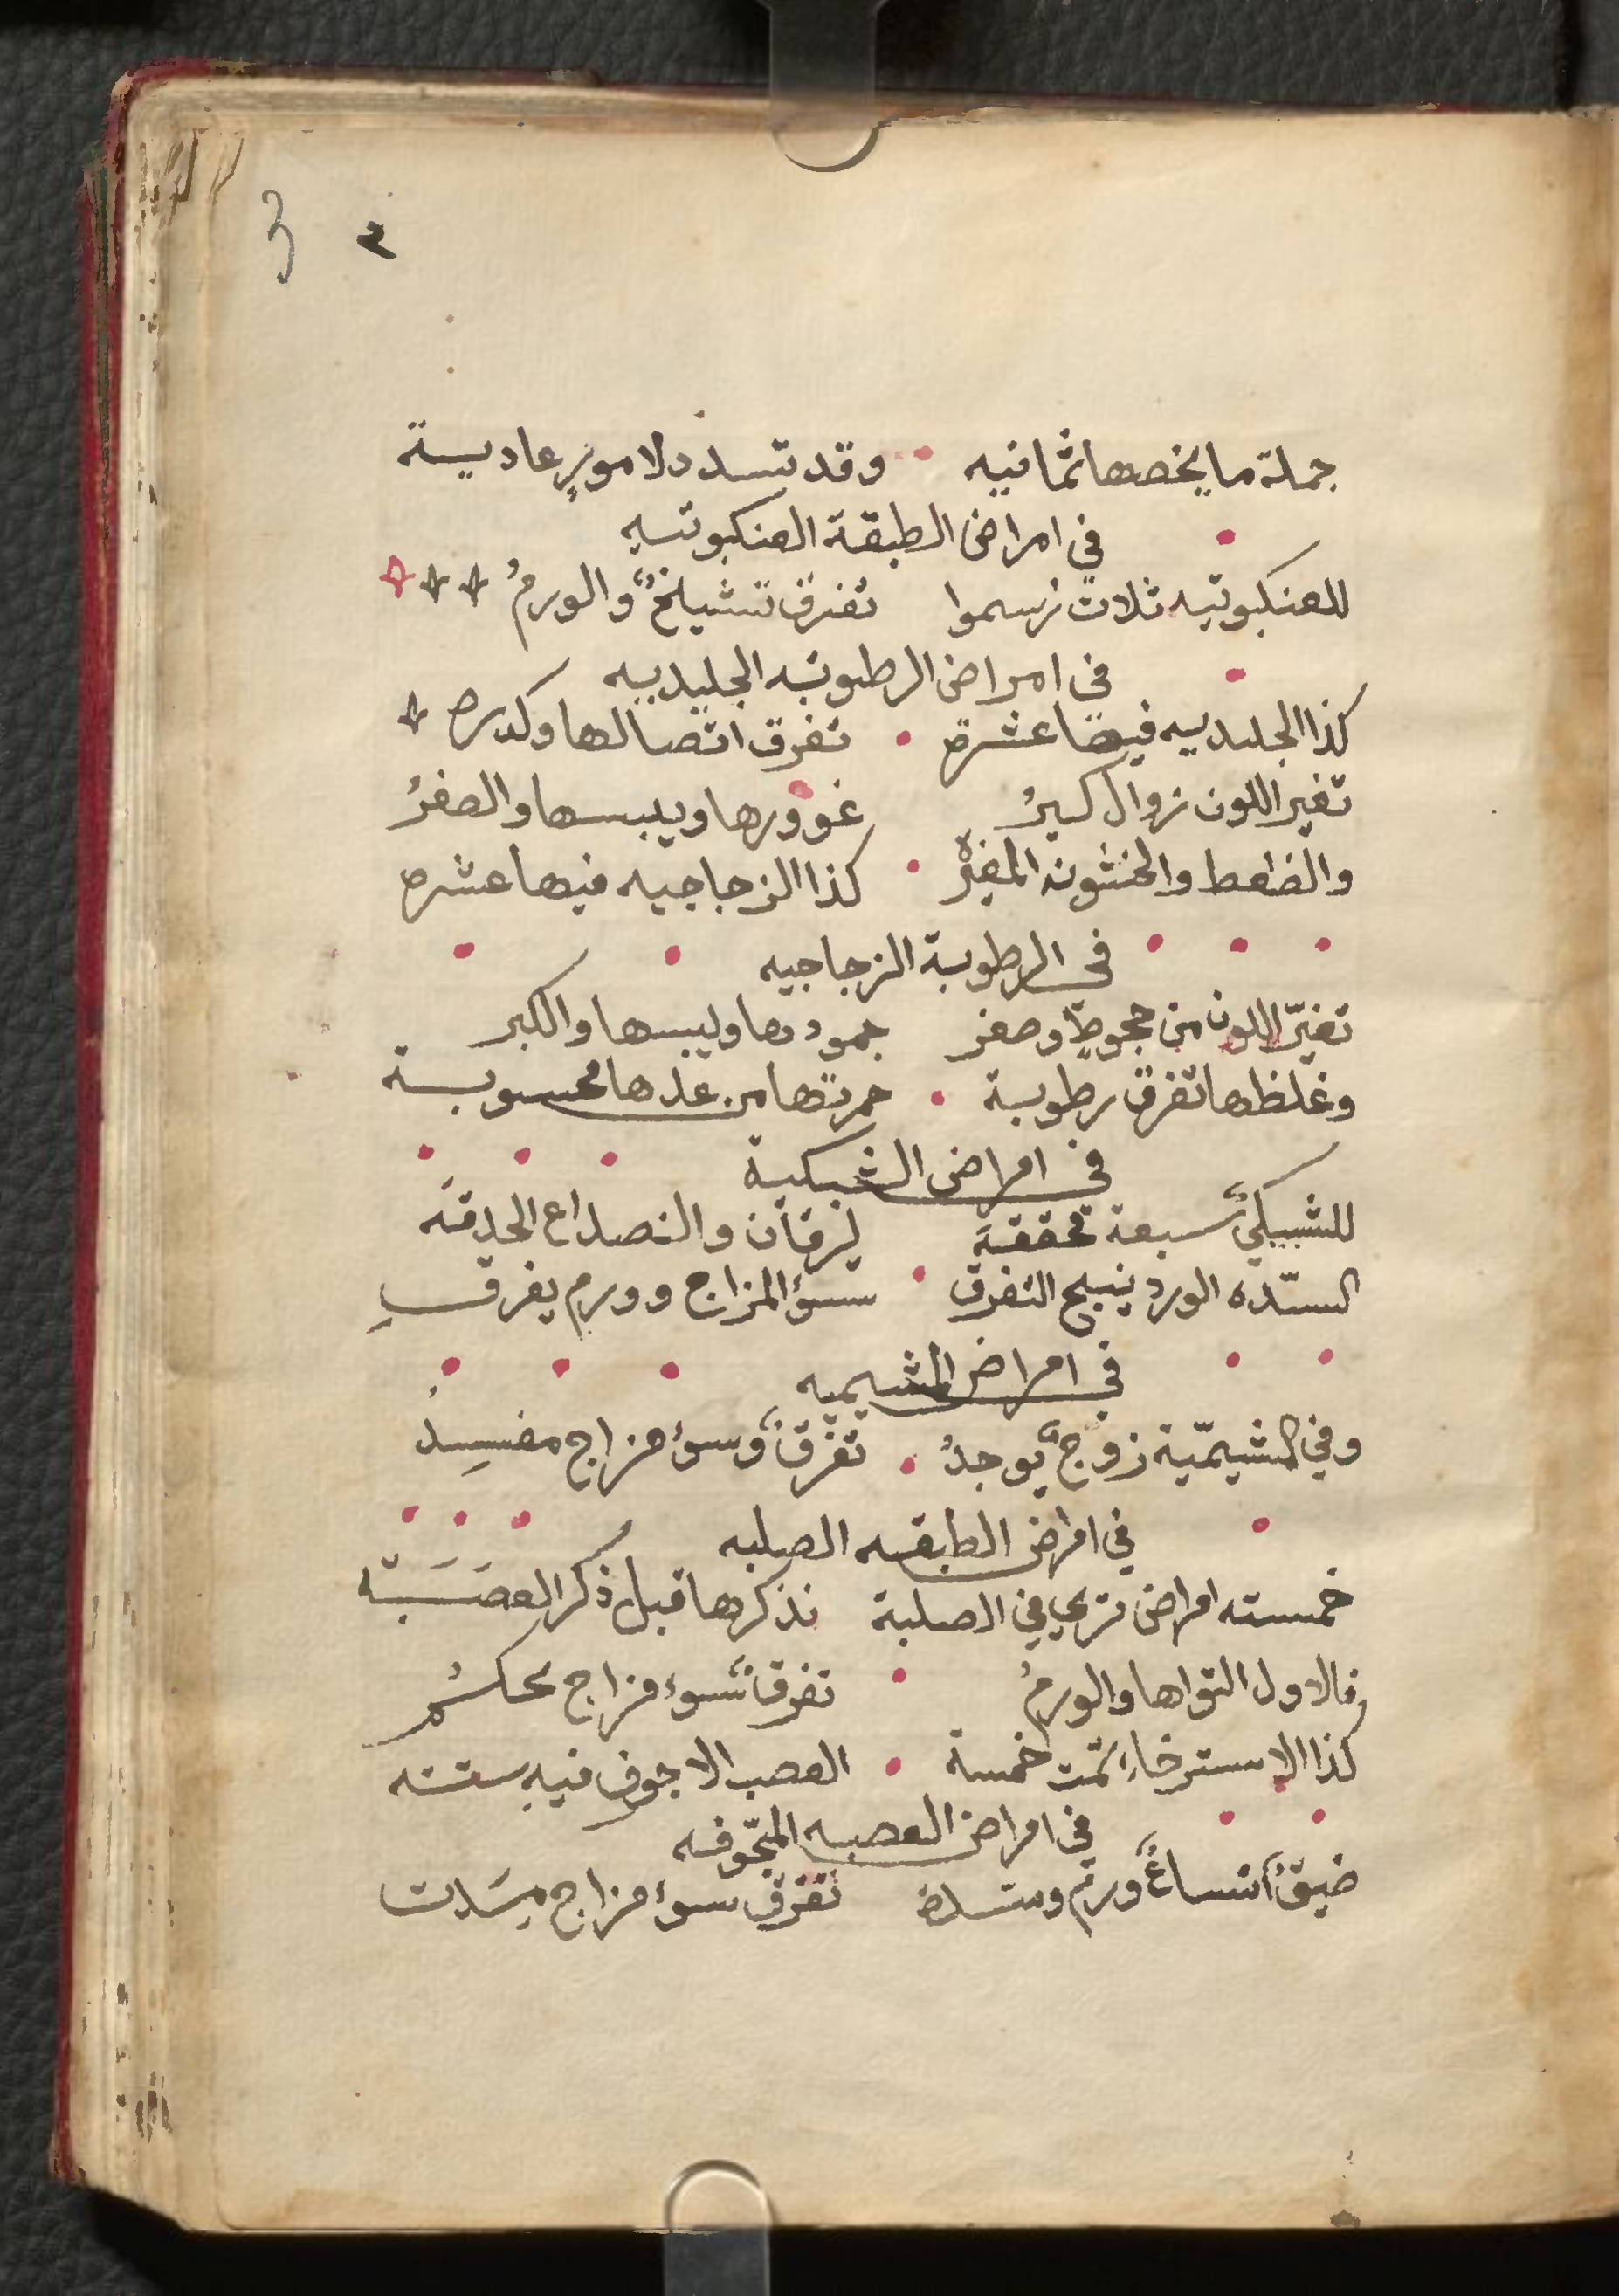 ٣ 3
جملة ما يخصها ثمانيه وقد تسدد لامورٍ عاديـة
في امراض الطبقة العنكبوتيه
للعنكبوتيه ثلاث رسموا تفرق تشيلخٌ والورمُ
في امراض الرطوبه الجليديه
كذا الجليديه فيها عشرة تفرق اتصالها وكدره
تغير اللون زوال كبرُ غوورها ويبسها والصغرُ
والضغط والخشونه المغيره كذا الزجاجيه فيها عشره
في الرطوبة الزجاجيه
تغيّر اللون من جحوظٍ وصغر جمودها ويبسها والكبر
وغلظها تفرق رطوبة حمرتها من عدها محسوبـة
في امراض الشبكية
للشبيكيّ سبعة محققة يرقان والنصداع الحدقَه
السدّه الورد ينبج التفرق سؤ المزاج وورم يفرقِ
في امراض المشيميه
وفي المشيميّة زوجٌ يوجدُ تفرّقٌ وسؤ مزاج مفسِدُ
في امراض الطبقه الصلبه
خمسته امراض تري في الصلبة نذكرها قبل ذكر العصَبَته
فالاول التواها والورمُ تفرق سوء مزاج محكـمُ
كذا الاسترخاءِ تمّت خمسة العصب الاجوف فيهِ ستته
في امراض العصبه المجّوفه
ضيقٌ اتساعٌ ورم وسـده تفرق سوء مزاج